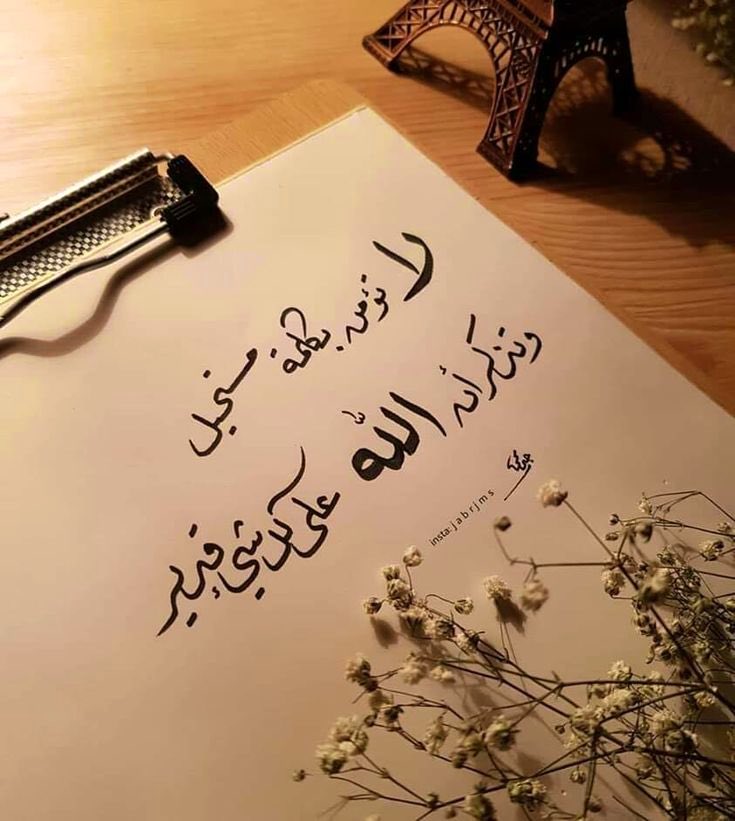 لا تؤمن بكلمة مستحيل
وتذكر أن الله
على كل شيء قدير
insta: j a b r j m s